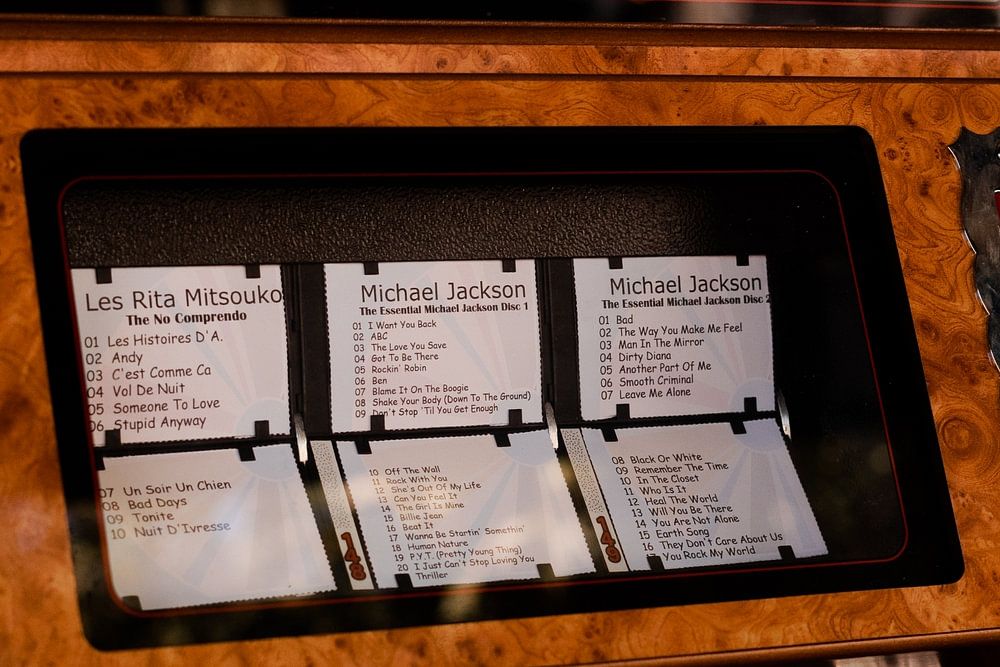 Les Rita Mitsouko
The No Comprendo
01 Les Histoires D'A.
02 Andy
03 C'est Comme Ca
04 Vol De Nuit
05 Someone To Love
06 Stupid Anyway
07 Un Soir Un Chien
08 Bad Days
09 Tonite
10 Nuit D'Ivresse
Michael Jackson
The Essential Michael Jackson Disc 1
01 I Want You Back
02 ABC
03 The Love You Save
04 Got To Be There
05 Rockin' Robin
06 Ben
07 Blame It On The Boogie
08 Shake Your Body (Down To The Ground)
09 Don't Stop 'Til You Get Enough
10 Off The Wall
11 Rock With You
12 She's Out Of My Life
13 Can You Feel It
14 The Girl Is Mine
15 Billie Jean
16 Beat It
17 Wanna Be Startin' Somethin'
18 Human Nature
19 P.Y.T. (Pretty Young Thing)
20 I Just Can't Stop Loving You
Thriller
148
Michael Jackson
The Essential Michael Jackson Disc 2
01 Bad
02 The Way You Make Me Feel
03 Man In The Mirror
04 Dirty Diana
05 Another Part Of Me
06 Smooth Criminal
07 Leave Me Alone
08 Black Or White
09 Remember The Time
10 In The Closet
11 Who Is It
12 Heal The World
13 Will You Be There
14 You Are Not Alone
15 Earth Song
16 They Don't Care About Us
You Rock My World
149